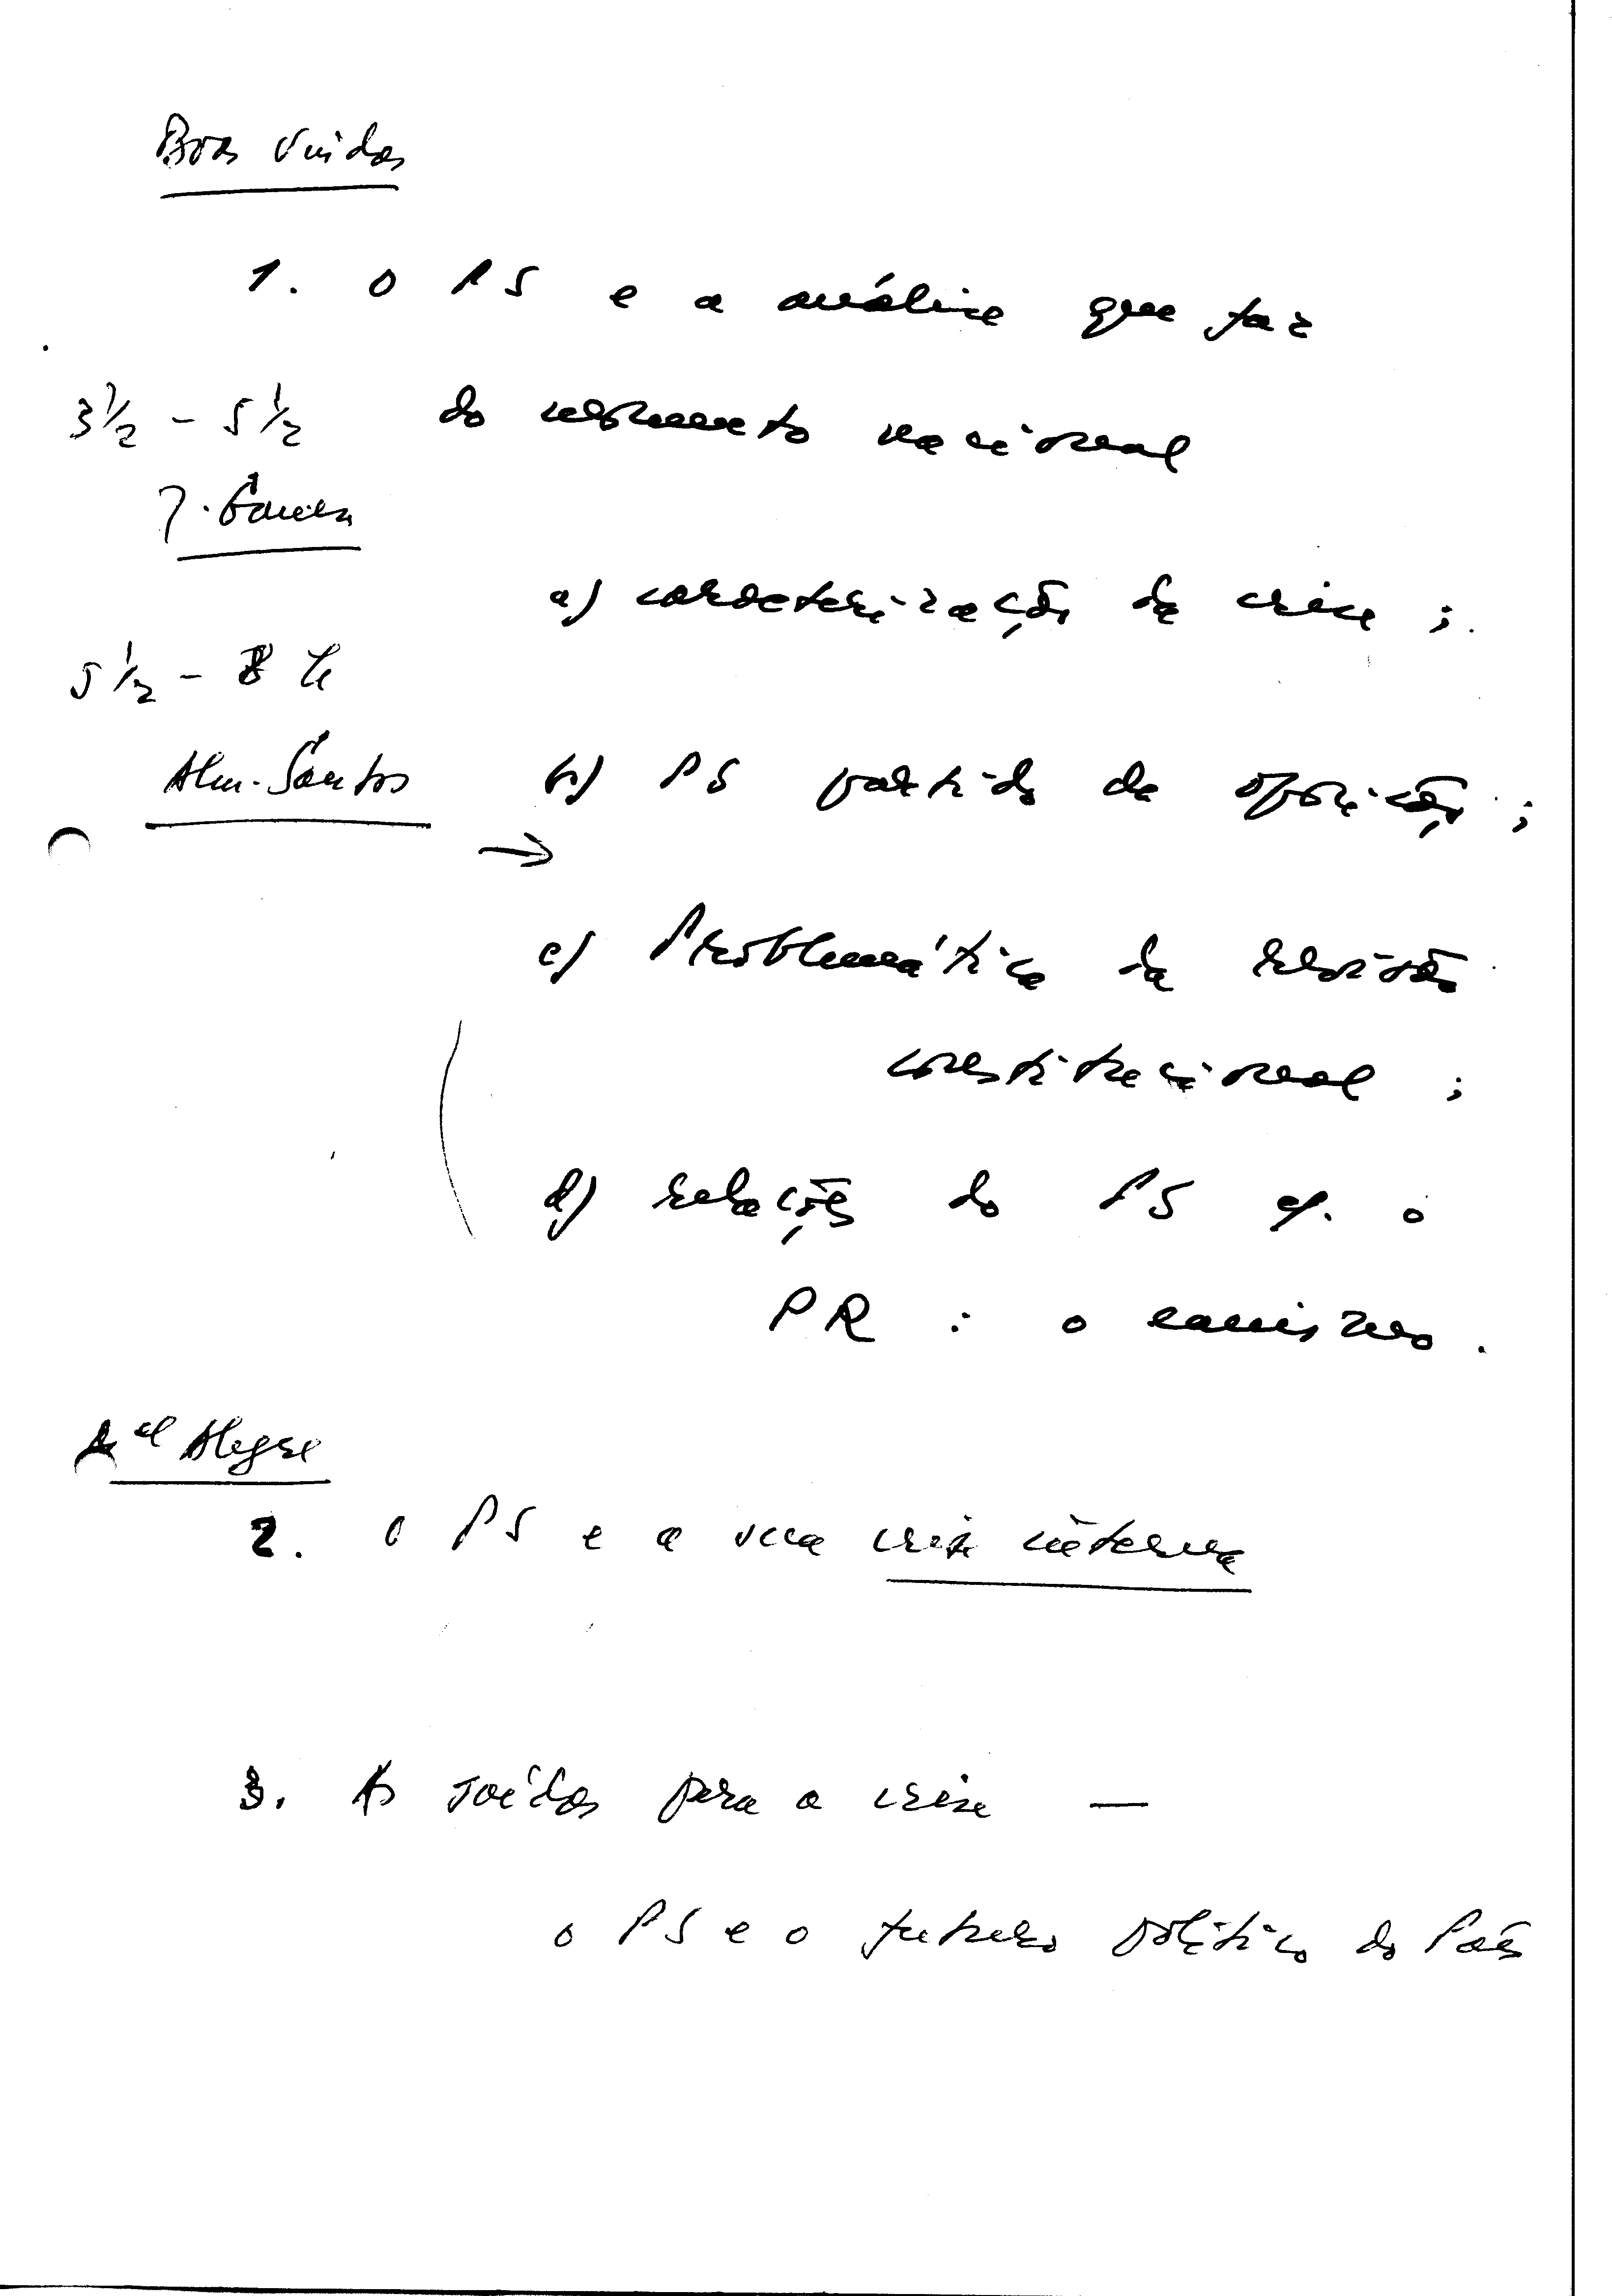 Boas Vindas
1. O PS e a análise que faz
3 1/2 - 5 1/2 do momento nacional
J. Gama
a) caracterização da crise ;
5 1/2 - 8 h
Alm. Santos b) PS partido de oposição ;
→
c) Problemática da revisão
constitucional ;
d) relações do PS c/. o
PR : o eanismo .
Alegre
2. O PS e a sua crise interna
3. As saídas para a crise —
o PS e o futuro político do País